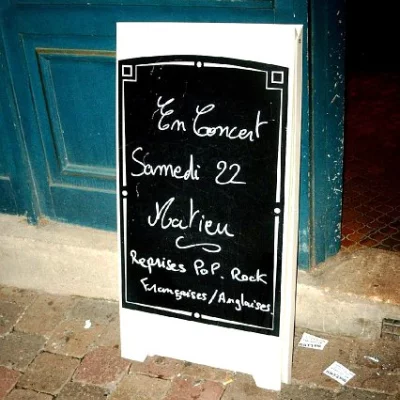 En Concert
Samedi 22
Matieu
Reprises PoP. Rock
Françaises/Anglaises.